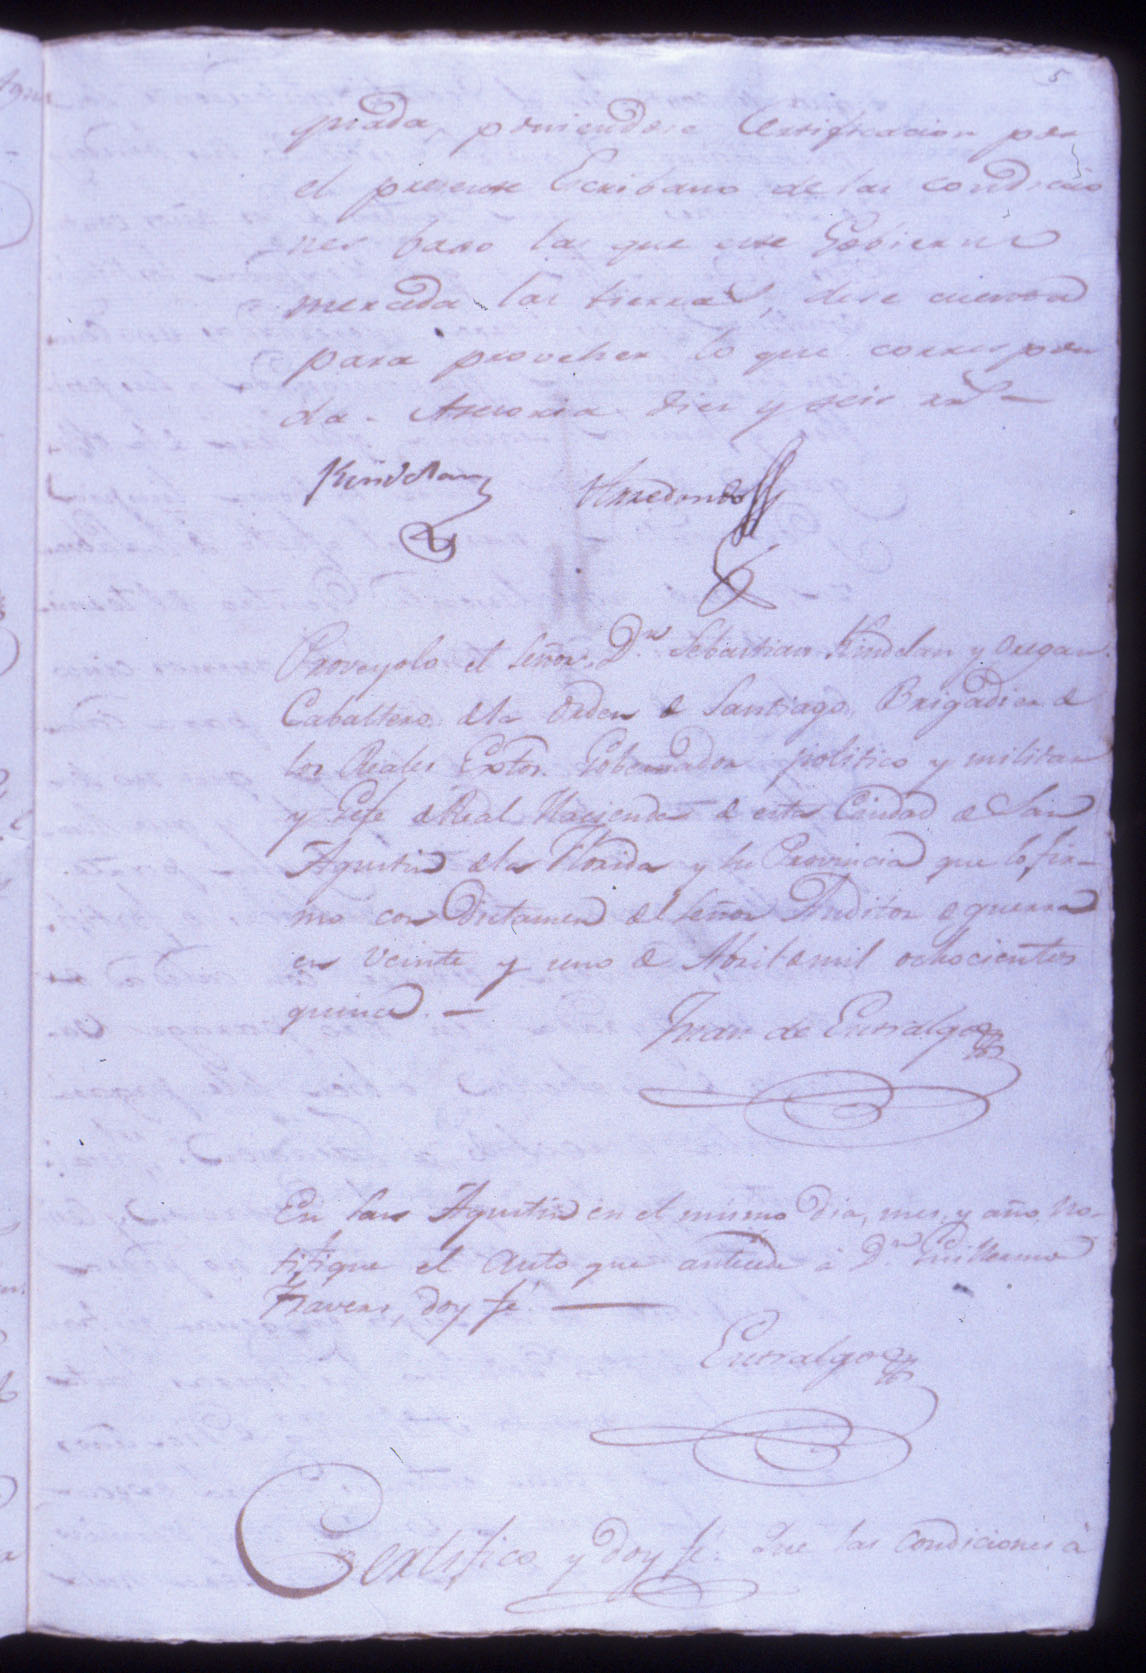 5
grada, poniendose Certificacion por
el presente Escribano de las condicio
nes baxo las que este Gobierno
merceda las tierras, dese cuenta
para proveher lo que correspon
da. Asesoria dies y seis rr.s —
Kindelan Arredondo
Proveyolo el Señor D.n Sebastian Kindelan y Oregan
Caballero de la Orden de Santiago, Brigadier de
los Reales Extos. Gobernador politico y militar
y Gefe de Real Hacienda de esta Ciudad de San
Agustin de la Florida y su Provincia que lo fir-
mó con Dictamen del Señor Auditor de guerra
en veinte y uno de Abril de mil ochocientos
quince. —
Juan de Entralgo
En San Agustin en el mismo dia, mes, y año, No-
tifique el auto que antecede à D.n Guillermo
Travers, doy fé. —
Entralgo
Certifico y doy fé: Que las condiciones à